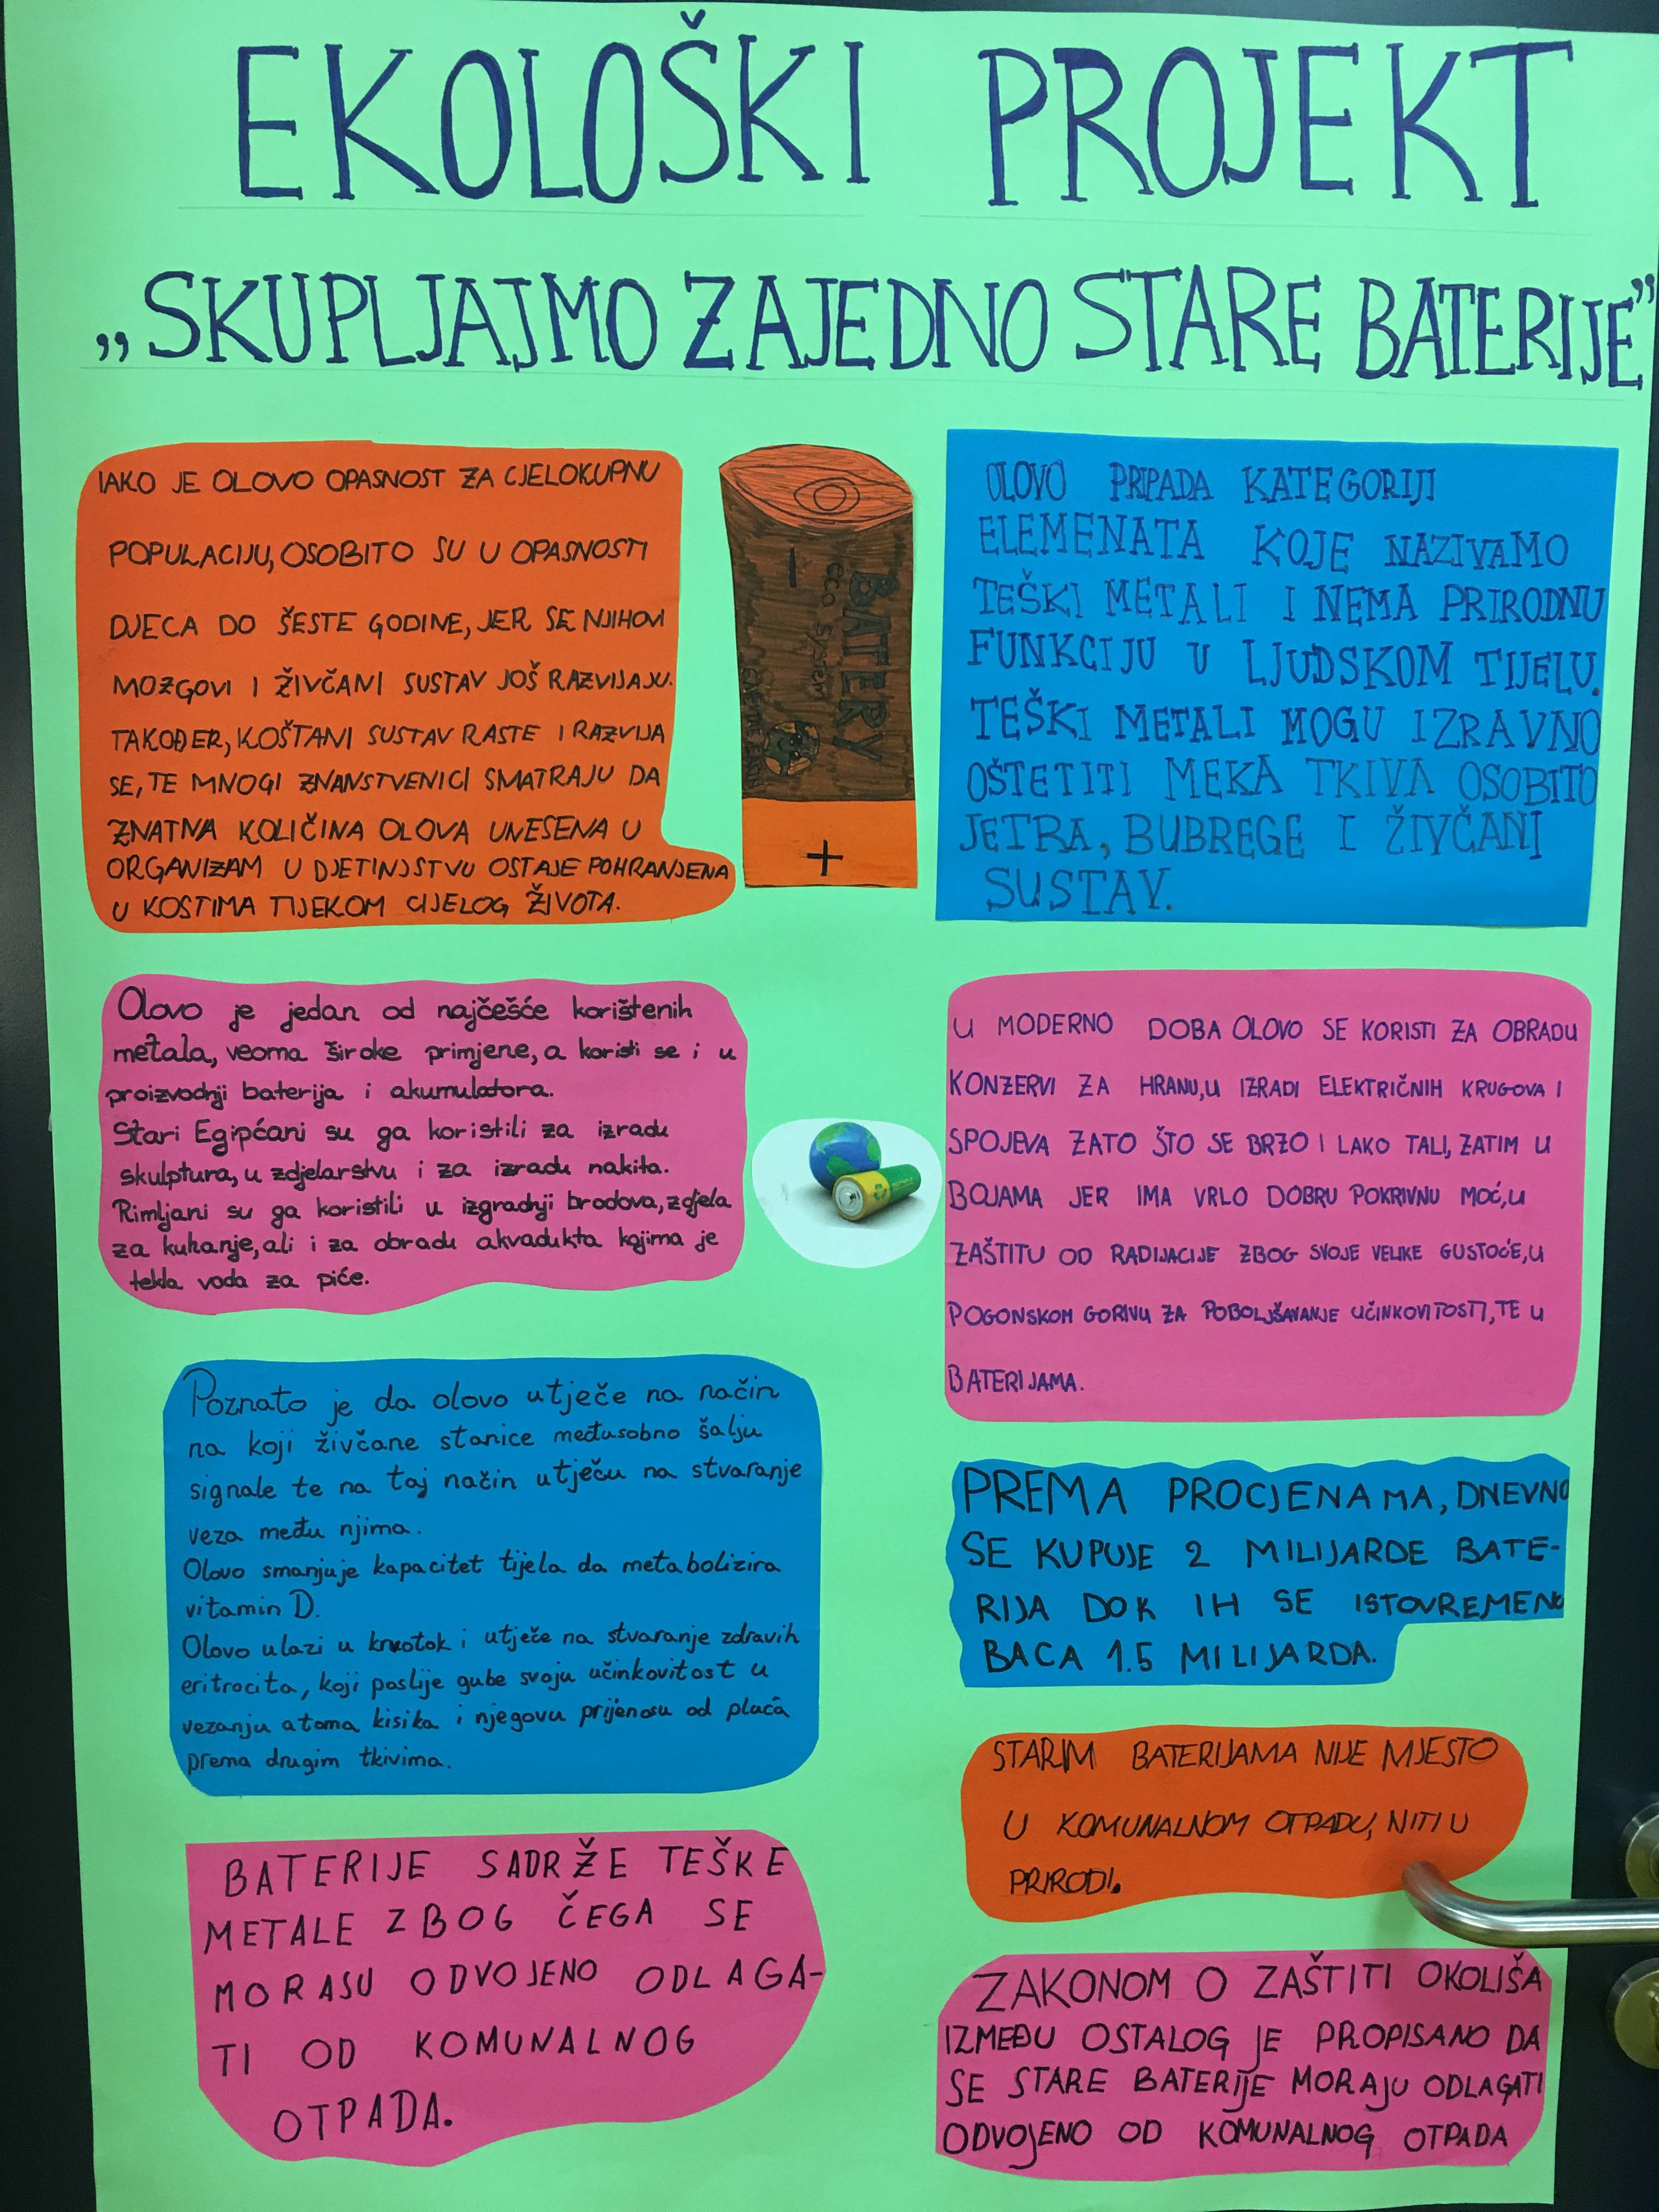 EKOLOŠKI PROJEKT
„SKUPLJAJMO ZAJEDNO STARE BATERIJE”
IAKO JE OLOVO OPASNOST ZA CJELOKUPNU
POPULACIJU, OSOBITO SU U OPASNOSTI
DJECA DO ŠESTE GODINE, JER SE NJIHOVI
MOZGOVI I ŽIVČANI SUSTAV JOŠ RAZVIJAJU.
TAKOĐER, KOŠTANI SUSTAV RASTE I RAZVIJA
SE, TE MNOGI ZNANSTVENICI SMATRAJU DA
ZNATNA KOLIČINA OLOVA UNESENA U
ORGANIZAM U DJETINJSTVU OSTAJE POHRANJENA
U KOSTIMA TIJEKOM CIJELOG ŽIVOTA.
BATERY
eco system
+
OLOVO PRIPADA KATEGORIJI
ELEMENATA KOJE NAZIVAMO
TEŠKI METALI I NEMA PRIRODNU
FUNKCIJU U LJUDSKOM TIJELU.
TEŠKI METALI MOGU IZRAVNO
OŠTETITI MEKA TKIVA OSOBITO
JETRA, BUBREGE I ŽIVČANI
SUSTAV.
Olovo je jedan od najčešće korištenih
metala, veoma široke primjene, a koristi se i u
proizvodnji baterija i akumulatora.
Stari Egipćani su ga koristili za izradu
skulptura, u zdjelarstvu i za izradu nakita.
Rimljani su ga koristili u izgradnji brodova, zdjela
za kuhanje, ali i za obradu akvadukta kojima je
tekla voda za piće.
U MODERNO DOBA OLOVO SE KORISTI ZA OBRADU
KONZERVI ZA HRANU, U IZRADI ELEKTRIČNIH KRUGOVA I
SPOJEVA ZATO ŠTO SE BRZO I LAKO TALI, ZATIM U
BOJAMA JER IMA VRLO DOBRU POKRIVNU MOĆ, U
ZAŠTITU OD RADIJACIJE ZBOG SVOJE VELIKE GUSTOĆE, U
POGONSKOM GORIVU ZA POBOLJŠAVANJE UČINKOVITOSTI, TE U
BATERIJAMA.
Poznato je da olovo utječe na način
na koji živčane stanice međusobno šalju
signale te na taj način utječu na stvaranje
veza među njima.
Olovo smanjuje kapacitet tijela da metabolizira
vitamin D.
Olovo ulazi u krvotok i utječe na stvaranje zdravih
eritrocita, koji poslije gube svoju učinkovitost u
vezanju atoma kisika i njegovu prijenosu od pluća
prema drugim tkivima.
PREMA PROCJENAMA, DNEVNO
SE KUPUJE 2 MILIJARDE BATE-
RIJA DOK IH SE ISTOVREMENO
BACA 1.5 MILIJARDA.
STARIM BATERIJAMA NIJE MJESTO
U KOMUNALNOM OTPADU, NITI U
PRIRODI.
BATERIJE SADRŽE TEŠKE
METALE ZBOG ČEGA SE
MORASU ODVOJENO ODLAGA-
TI OD KOMUNALNOG
OTPADA.
ZAKONOM O ZAŠTITI OKOLIŠA
IZMEĐU OSTALOG JE PROPISANO DA
SE STARE BATERIJE MORAJU ODLAGATI
ODVOJENO OD KOMUNALNOG OTPADA